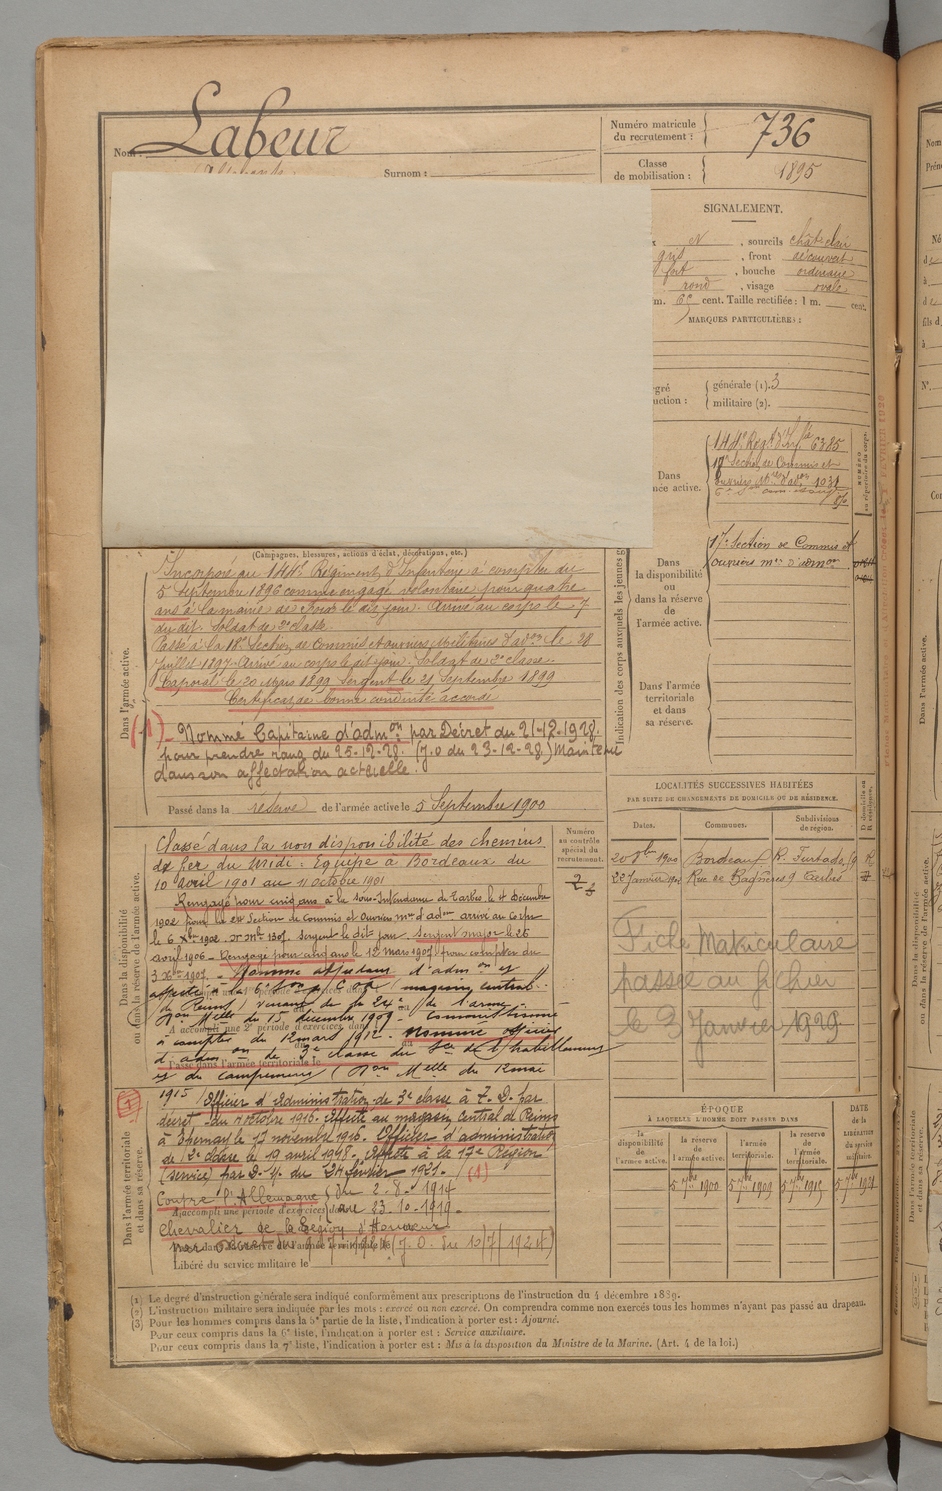 Nom : Labeur
Surnom :
Numéro matricule
du recrutement :
736
Classe
de mobilisation :
1895
SIGNALEMENT.
N , sourcils chât clair
gris , front découvert
fort , bouche ordinaire
rond , visage ovale
m. 65 cent. Taille rectifiée : 1 m. cent.
MARQUES PARTICULIÈRES :
générale (1). 3
militaire (2).
Dans
144e Regt d'Infie 6385
17e Section de Commis et
1031
Dans
la disponibilité
ou
dans la réserve
de
l'armée active.
17e Section de Commis et
ouvriers mres d'admon
Dans l'armée
territoriale
et dans
sa réserve.
Indication des corps auxquels les jeunes g
(Campagnes, blessures, actions d'éclat, décorations, etc.)
Dans l'armée active.
Incorporé au 144e Régiment d'Infanterie à compter du
5 Septembre 1896 comme engagé volontaire pour quatre
ans à la mairie de le dit jour. Arrivé au corps le 7
du dit. Soldat de 2e classe.
Passé à la 18e Section de Commis et ouvriers Militaires d'admon le 28
Juillet 1897. Arrivé au corps le dit jour. Soldat de 2e classe.
Caporal le 20 Mars 1899 Sergent le 21 Septembre 1899
Certificat de bonne conduite accordé
(1) - Nommé Capitaine d'admon par Décret du 21-12-1928.
pour prendre rang du 25-12-28. (J.O du 23-12-28) Maintenu
dans son affectation actuelle.
Passé dans la réserve de l'armée active le 5 Septembre 1900
LOCALITÉS SUCCESSIVES HABITÉES
PAR SUITE DE CHANGEMENTS DE DOMICILE OU DE RÉSIDENCE.
Dates. Communes. Subdivisions
de région.
D domicile ou
R résidence.
1900 Bordeaux R. Furtado, 9 R
22 Janvier Rue de Bagnères 9 Tarbes
Fiche Matriculaire
passée au fichier
le 3 Janvier 1929.
Numéro
au contrôle
spécial du
recrutement.
Dans la disponibilité
ou dans la réserve de l'armée active.
Classé dans la non disponibilité des chemins
de fer du Midi : Equipé à Bordeaux du
10 avril 1901 au 11 octobre 1901
Rengagé pour cinq ans à la Sous-Intendance de Tarbes le 4 décembre
1902 pour la 24 Section de Commis et Ouvriers mres d'admon arrivé au Corps
le 6 Xbre 1902. no mle 1307. Sergent le dit jour Sergent major le 26
avril 1906 - Rengagé pour cinq ans le 12 mars 1907 pour compter du
3 Xbre 1907. - Nommé adjudant d'admon et
affecté à la 6e Son de C.O.A. magasin central
de Reims, venant de la 24e
Mlle du 15 décembre 1909 - Commissionné
A accompli une 2e période d'exercices dans
à compter du 12 mars 1912 - Nommé officier
d'admon de 3e classe du Sce de l'habillement
Passé dans l'armée territoriale le
et du campement (Don Melle du 12 mai
Dans l'armée territoriale
et dans sa réserve.
1915 Officier d'Administration de 3e classe à T. D. par
décret du 4 octobre 1916. Affecté au magasin central de Reims
à Epernay le 17 novembre 1916. Officier d'administration
de 2e classe le 19 avril 1918. Affecté à la 17e Région
(service) par D. M. du 24 février 1921. (1)
Contre l'Allemagne du 2-8-1914
A accompli une période d'exercices dans
au 23-10-1919.
Chevalier de la Légion d'Honneur
(J.O. du 10/7/1924)
Libéré du service militaire le
ÉPOQUE
À LAQUELLE L'HOMME DOIT PASSER DANS
la
disponibilité
de
l'armée active.
la réserve
de
l'armée active.
l'armée
territoriale.
la réserve
de
l'armée
territoriale.
DATE
de la
LIBÉRATION
du service
militaire.
5 7bre 1900 5 7bre 1909 5 7bre 1915 5 7bre 1921
(1) Le degré d'instruction générale sera indiqué conformément aux prescriptions de l'instruction du 4 décembre 1889.
(2) L'instruction militaire sera indiquée par les mots : exercé ou non exercé. On comprendra comme non exercés tous les hommes n'ayant pas passé au drapeau.
(3) Pour les hommes compris dans la 5e partie de la liste, l'indication à porter est : Ajourné.
Pour ceux compris dans la 6e liste, l'indication à porter est : Service auxiliaire.
Pour ceux compris dans la 7e liste, l'indication à porter est : Mis à la disposition du Ministre de la Marine. (Art. 4 de la loi.)